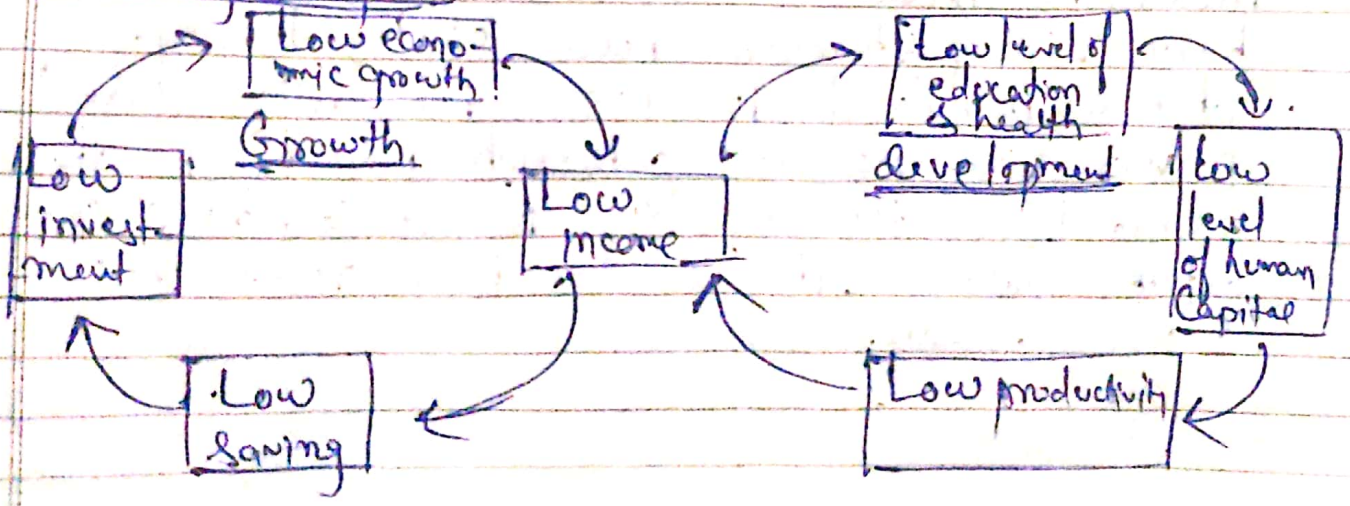 Low econo-
mic growth
Growth.
Low
invest-
ment
Low
income
Low
saving
Low level of
education
& health
development
Low
level
of human
Capital
Low productivity